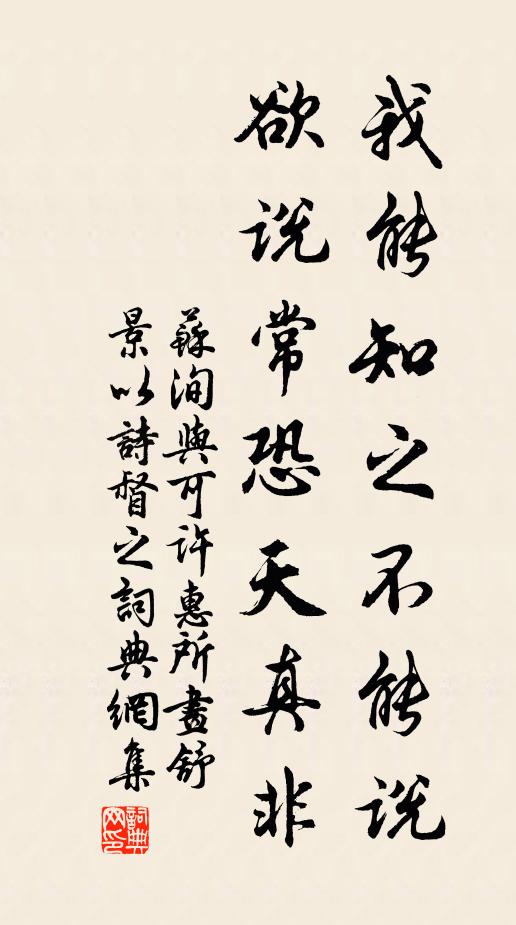 我能知之不能説
欲説常恐天真非
蘇洵與可許惠所畫舒
景以詩督之詞典網集
詞典
网印